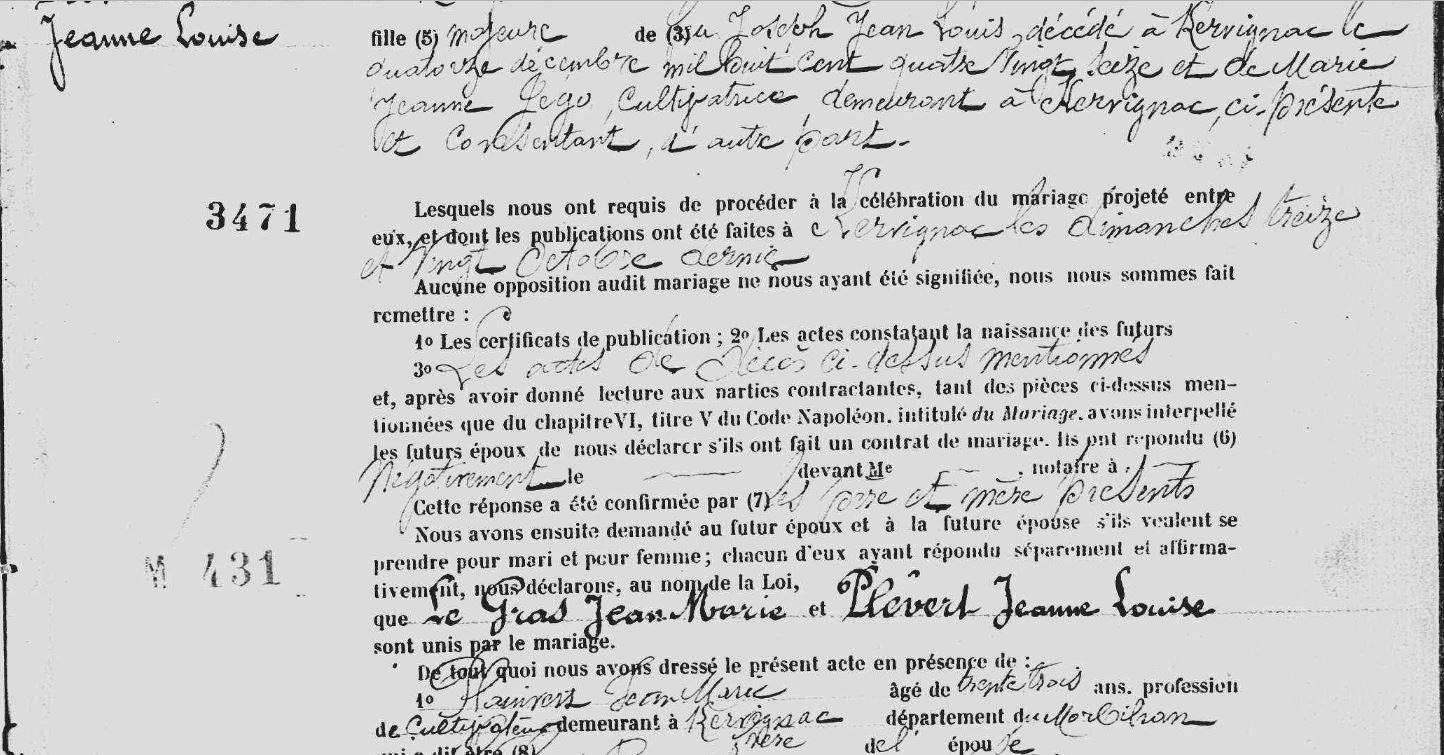 Jeanne Louise
fille (5) majeure de (3) feu Joseph Jean Louis, décédé à Kervignac le
quatorze décembre mil huit cent quatre vingt seize et de Marie
Jeanne Jégo, cultivatrice, demeurant à Kervignac, ci-présente
et consentant, d'autre part.
3471
Lesquels nous ont requis de procéder à la célébration du mariage projeté entre
eux, et dont les publications ont été faites à Kervignac les dimanches treize
et vingt Octobre dernier
Aucune opposition audit mariage ne nous ayant été signifiée, nous nous sommes fait
remettre :
1o Les certificats de publication ; 2o Les actes constatant la naissance des futurs
3o Les actes de décès ci-dessus mentionnés
et, après avoir donné lecture aux parties contractantes, tant des pièces ci-dessus men-
tionnées que du chapitre VI, titre V du Code Napoléon, intitulé du Mariage, avons interpellé
les futurs époux de nous déclarer s'ils ont fait un contrat de mariage. Ils ont repondu (6)
Négativement le devant Me , notaire à
Cette réponse a été confirmée par (7) les père et mère présents
Nous avons ensuite demandé au futur époux et à la future épouse s'ils veulent se
prendre pour mari et pour femme ; chacun d'eux ayant répondu séparement et affirma-
M 431
tivement, nous déclarons, au nom de la Loi,
que Le Gras Jean Marie et Plévert Jeanne Louise
sont unis par le mariage.
De tout quoi nous avons dressé le présent acte en présence de :
1o Jean Marie âgé de trente trois ans, profession
de Cultivateur demeurant à Kervignac département du Morbihan
qui a dit être (8) frère de l' épouse